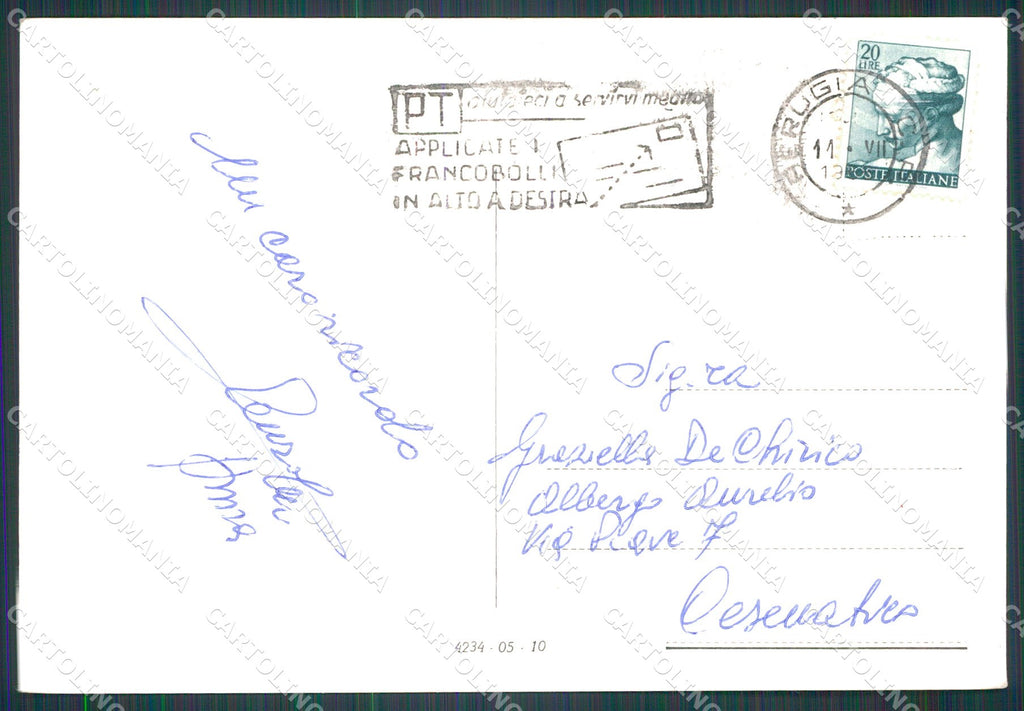 PT aiutateci a servirvi meglio
APPLICATE I
FRANCOBOLLI
IN ALTO A DESTRA
PERUGIA
11 · VII
20
LIRE
POSTE ITALIANE
Un caro ricordo
Anna
Sig.ra
Graziella De Chirico
Albergo Aurelio
Via Piave 7
Cesenatico
4234 - 05 - 10
CARTOLINOMANIA